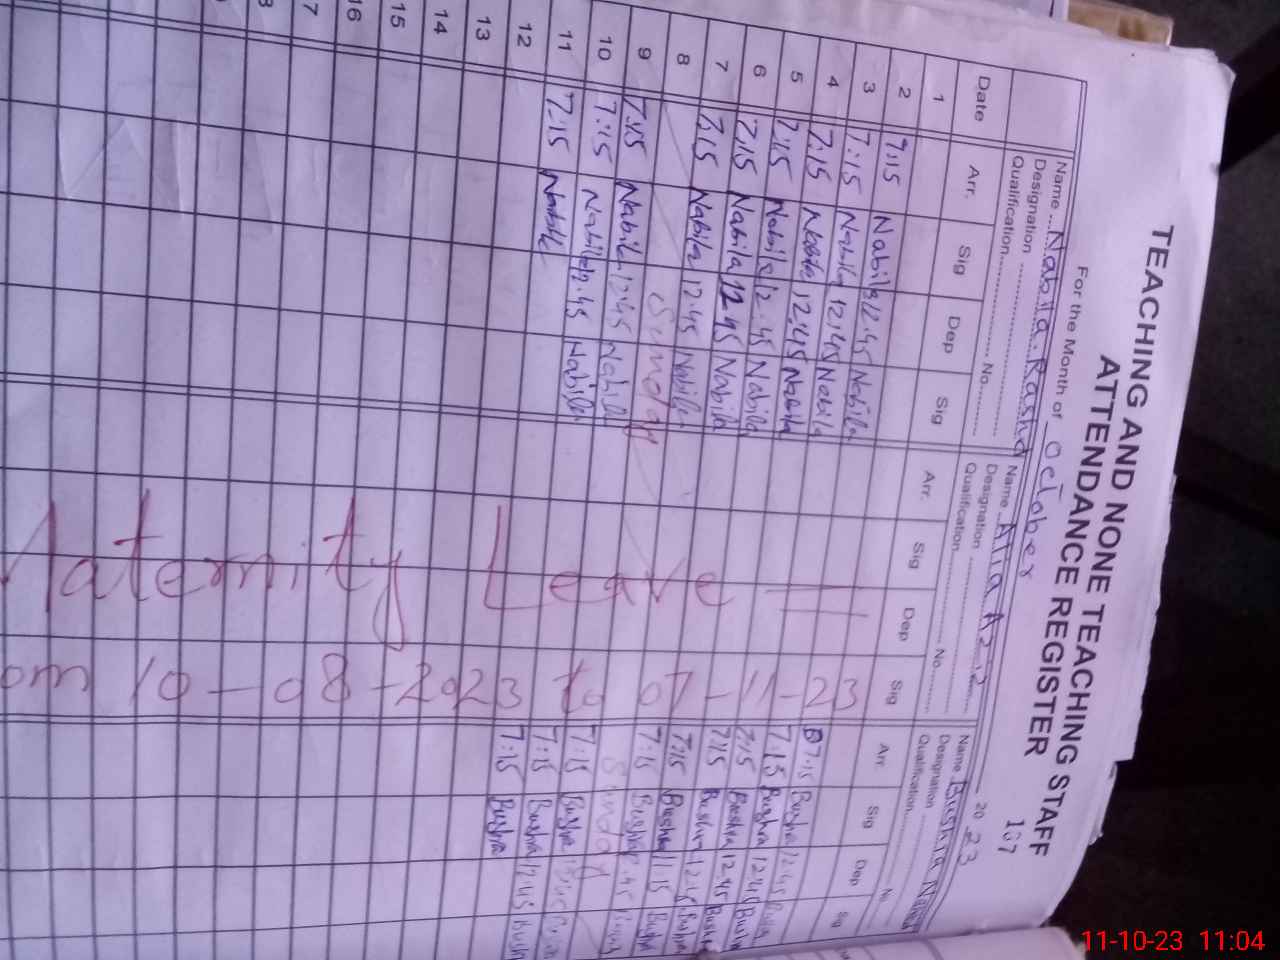 TEACHING AND NONE TEACHING STAFF
ATTENDANCE REGISTER
107
For the Month of October 20 23
Name Nabila Rashid
Designation
Qualification No.
Name Afia Aziz
Designation
Qualification No.
Name Bushra
Designation
Qualification No.
Date Arr. Sig Dep Sig Arr. Sig Dep Sig Arr. Sig Dep Sig
1
2 7:15 Nabila 12:45 Nabila 7:15 Bushra 12:45
3 7:15 Nabila 12:45 Nabila 7:15 Bushra 12:45
4 7:15 Nabila 12:45 Nabila 7:15 Bushra 12:45 Bushra
5 7:15 Nabila 12:45 Nabila 7:15 Bushra 12:45 Bushra
6 7:15 Nabila 12:45 Nabila 7:15 Bushra 12:45 Bushra
7 7:15 Nabila 12:45 Nabila 7:15 Bushra Bushra
8 Sunday Sunday
9 7:45 Nabila 12:45 Nabila 7:15 Bushra
10 7:15 Nabila 12:45 Nabila 7:15 Bushra 12:45 Bushra
11 7:15 Nabila 7:15 Bushra
12
13
14
15
16
17
Maternity Leave
10-08-2023 to 07-11-23
11-10-23 11:04